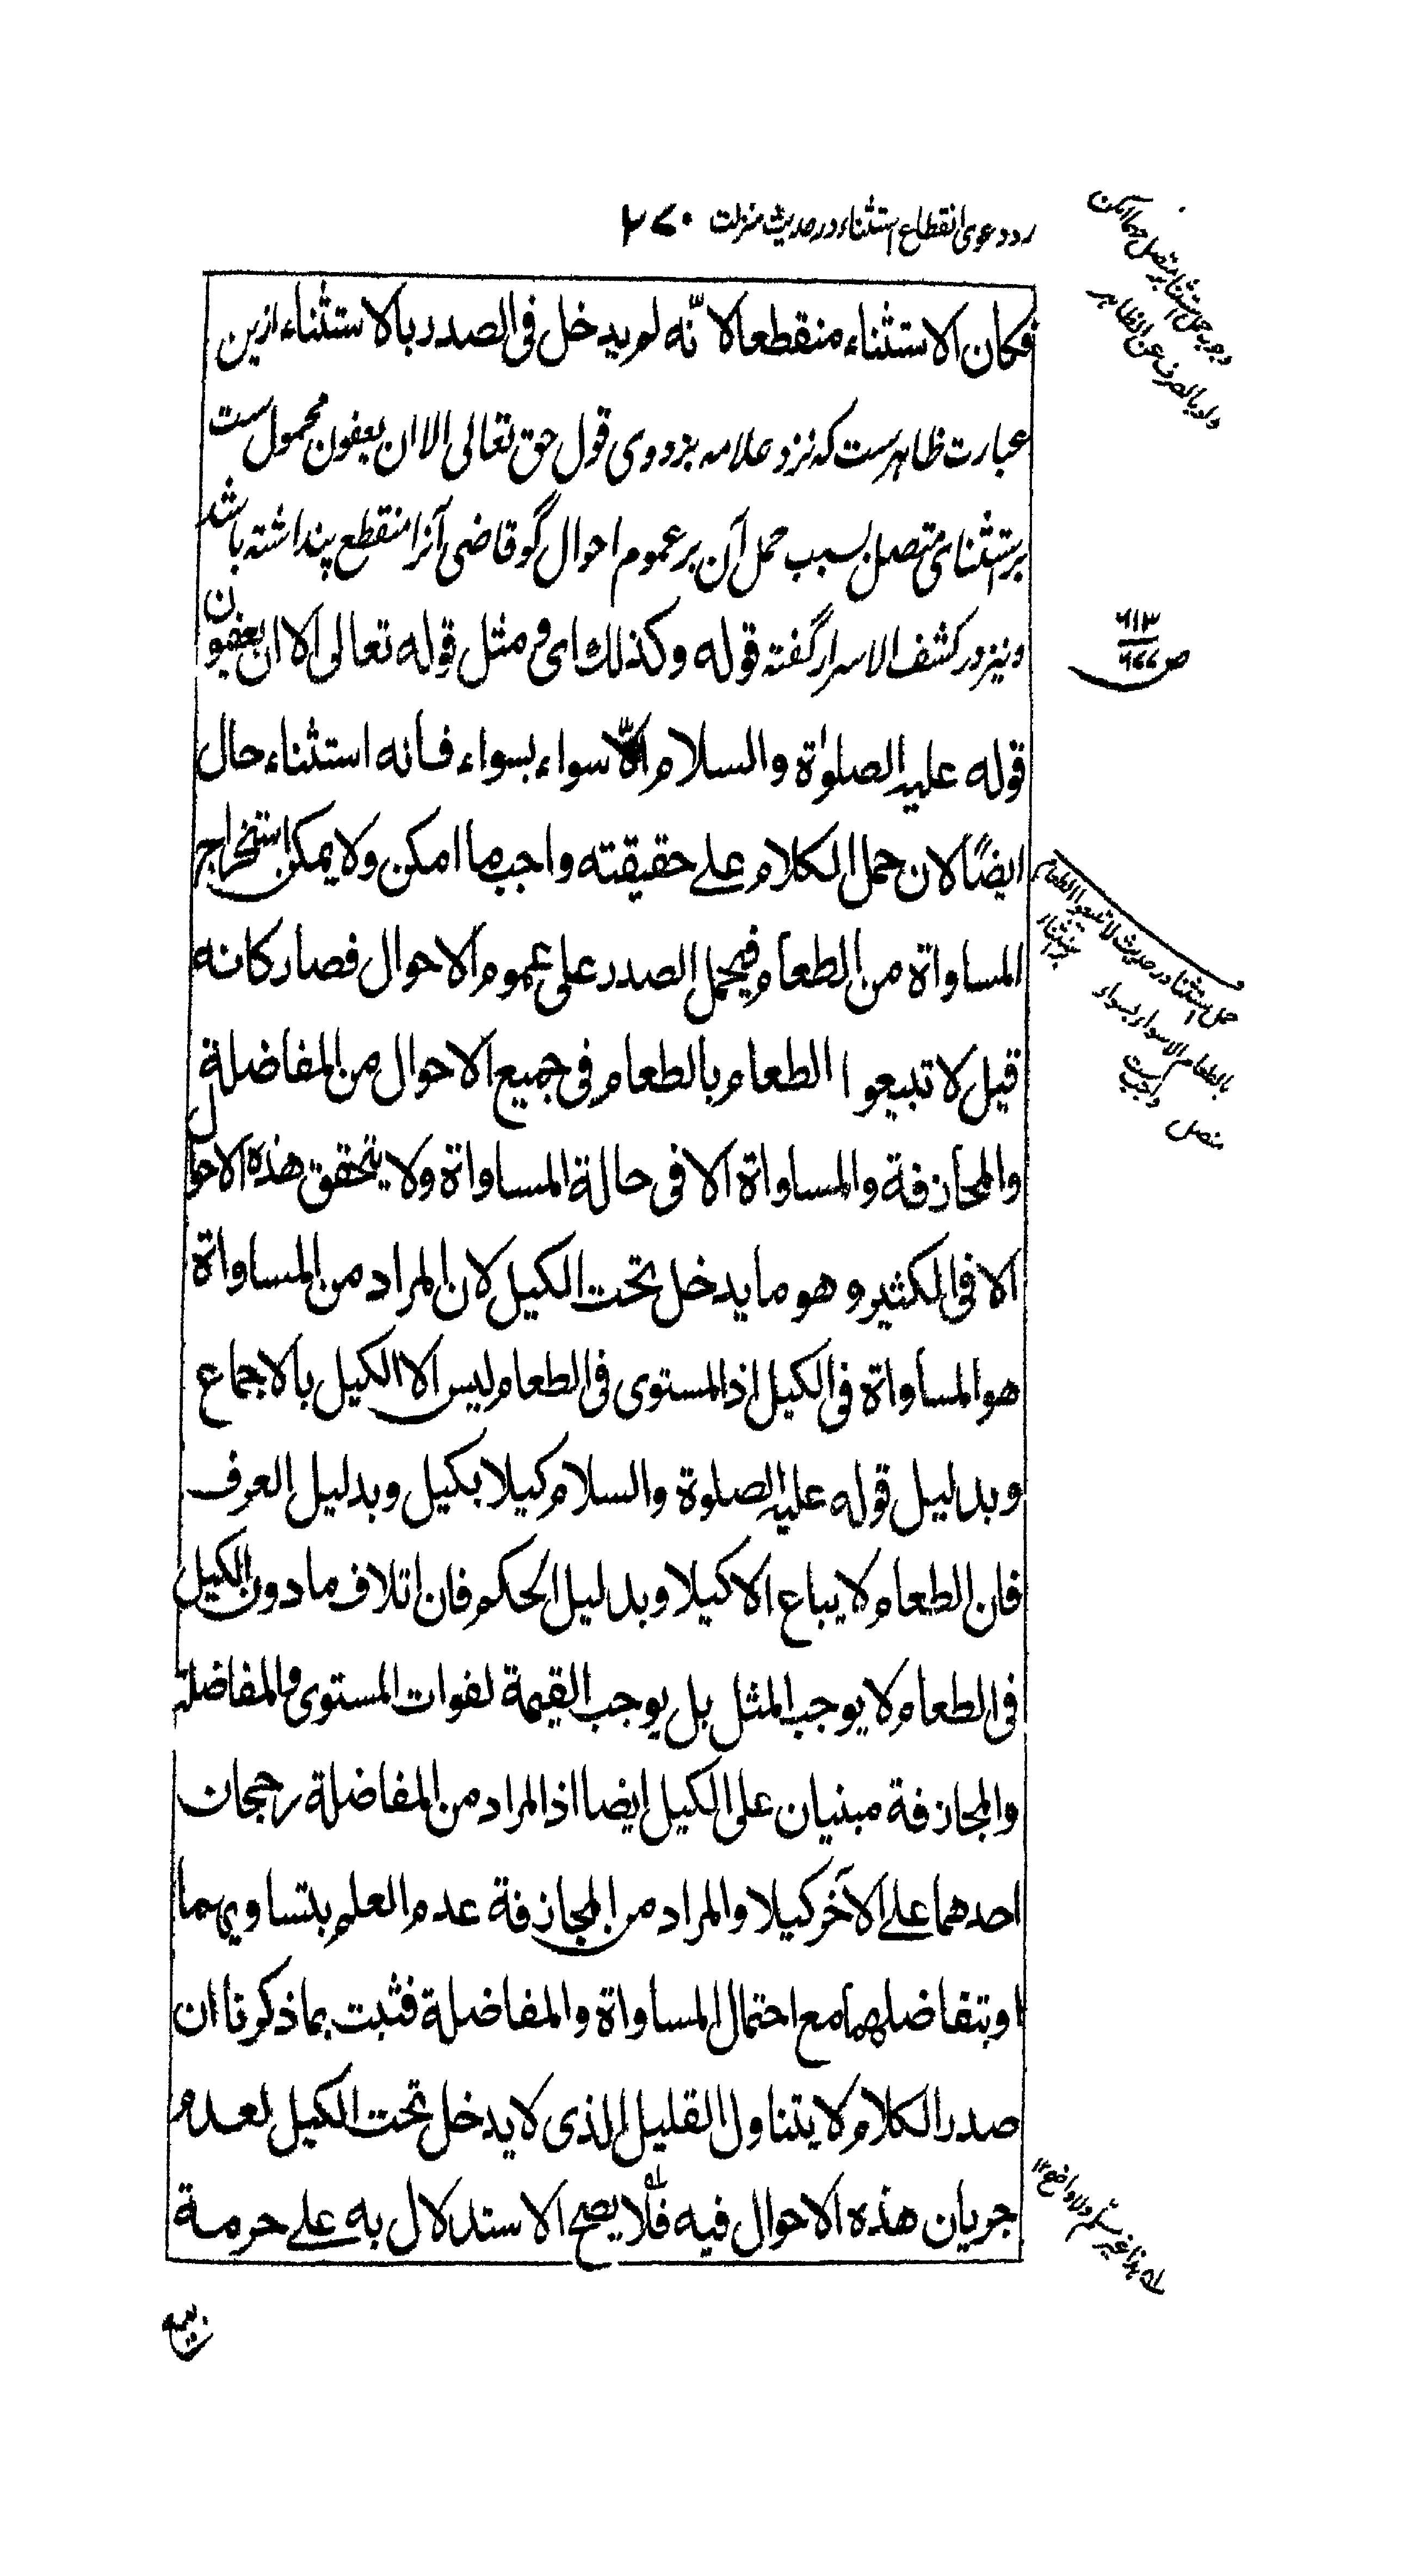 رد دعوی انقطاع استثناء در حدیث منزلت ۲۷۰
وجوب حمل استثنا بر متصل مهما امکن
ولو بالصرف عن الظاهر
فكان الاستثناء منقطعا لانّه لم يدخل في الصدر بالاستثناء ازین
عبارت ظاهرست که نزد علامه بزدوی قول حق تعالی الا ان یعفون محمول ست
بر استثنای متصل بسبب حمل آن بر عموم احوال گو قاضی آنرا منقطع پنداشته باشد
و نیز در کشف الاسرار گفته قوله وكذلك ای فی مثل قوله تعالى الا ان يعفون
قوله عليه الصلوٰة والسلام الّا سواء بسواء فانه استثناء حال
ايضًا لان حمل الكلام على حقيقته واجب ما امكن ولا يمكن استخراج
المساواة من الطعام فيحمل الصدر على عموم الاحوال فصار كانه
قيل لا تبيعوا الطعام بالطعام في جميع الاحوال من المفاضلة
والمجازفة والمساواة الا في حالة المساواة ولا يتحقق هذه الاحوال
الا في الكثير وهو ما يدخل تحت الكيل لان المراد من المساواة
هو المساواة في الكيل اذ المستوى في الطعام ليس الا الكيل بالاجماع
وبدليل قوله عليه الصلوة والسلام كيلا بكيل وبدليل العرف
فان الطعام لا يباع الا كيلا وبدليل الحكم فان اتلاف ما دون الكيل
في الطعام لا يوجب المثل بل يوجب القيمة لفوات المستوى والمفاضلة
والمجازفة مبنيان على الكيل ايضا اذ المراد من المفاضلة رجحان
احدهما على الآخر كيلا والمراد من المجازفة عدم العلم بتساويهما
او بتفاضلهما مع احتمال المساواة والمفاضلة فثبت بما ذكرنا ان
صدر الكلام لا يتناول القليل الذي لا يدخل تحت الكيل لعدم
جريان هذه الاحوال فيه فلا يصح الاستدلال به على حرمة
حمل استثنا در حدیث لا تبیعوا الطعام
بالطعام الا سواء بسواء
واجب ست
هذا غير مسلم ولا واضح ۱۲
بيعه